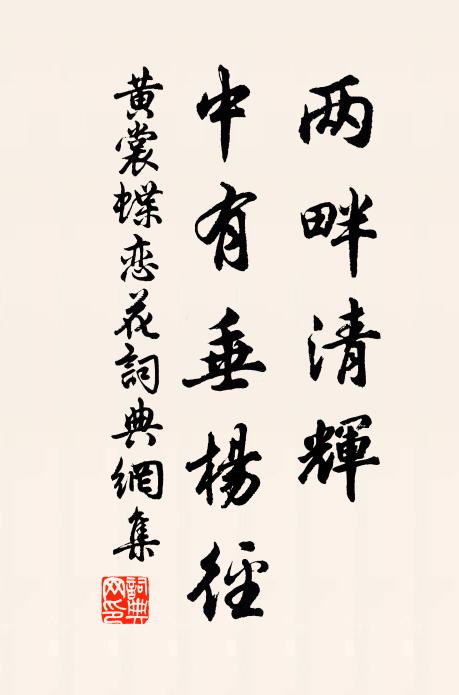 两畔清輝
中有垂楊徑
黄裳蝶恋花詞典網集
詞典网印